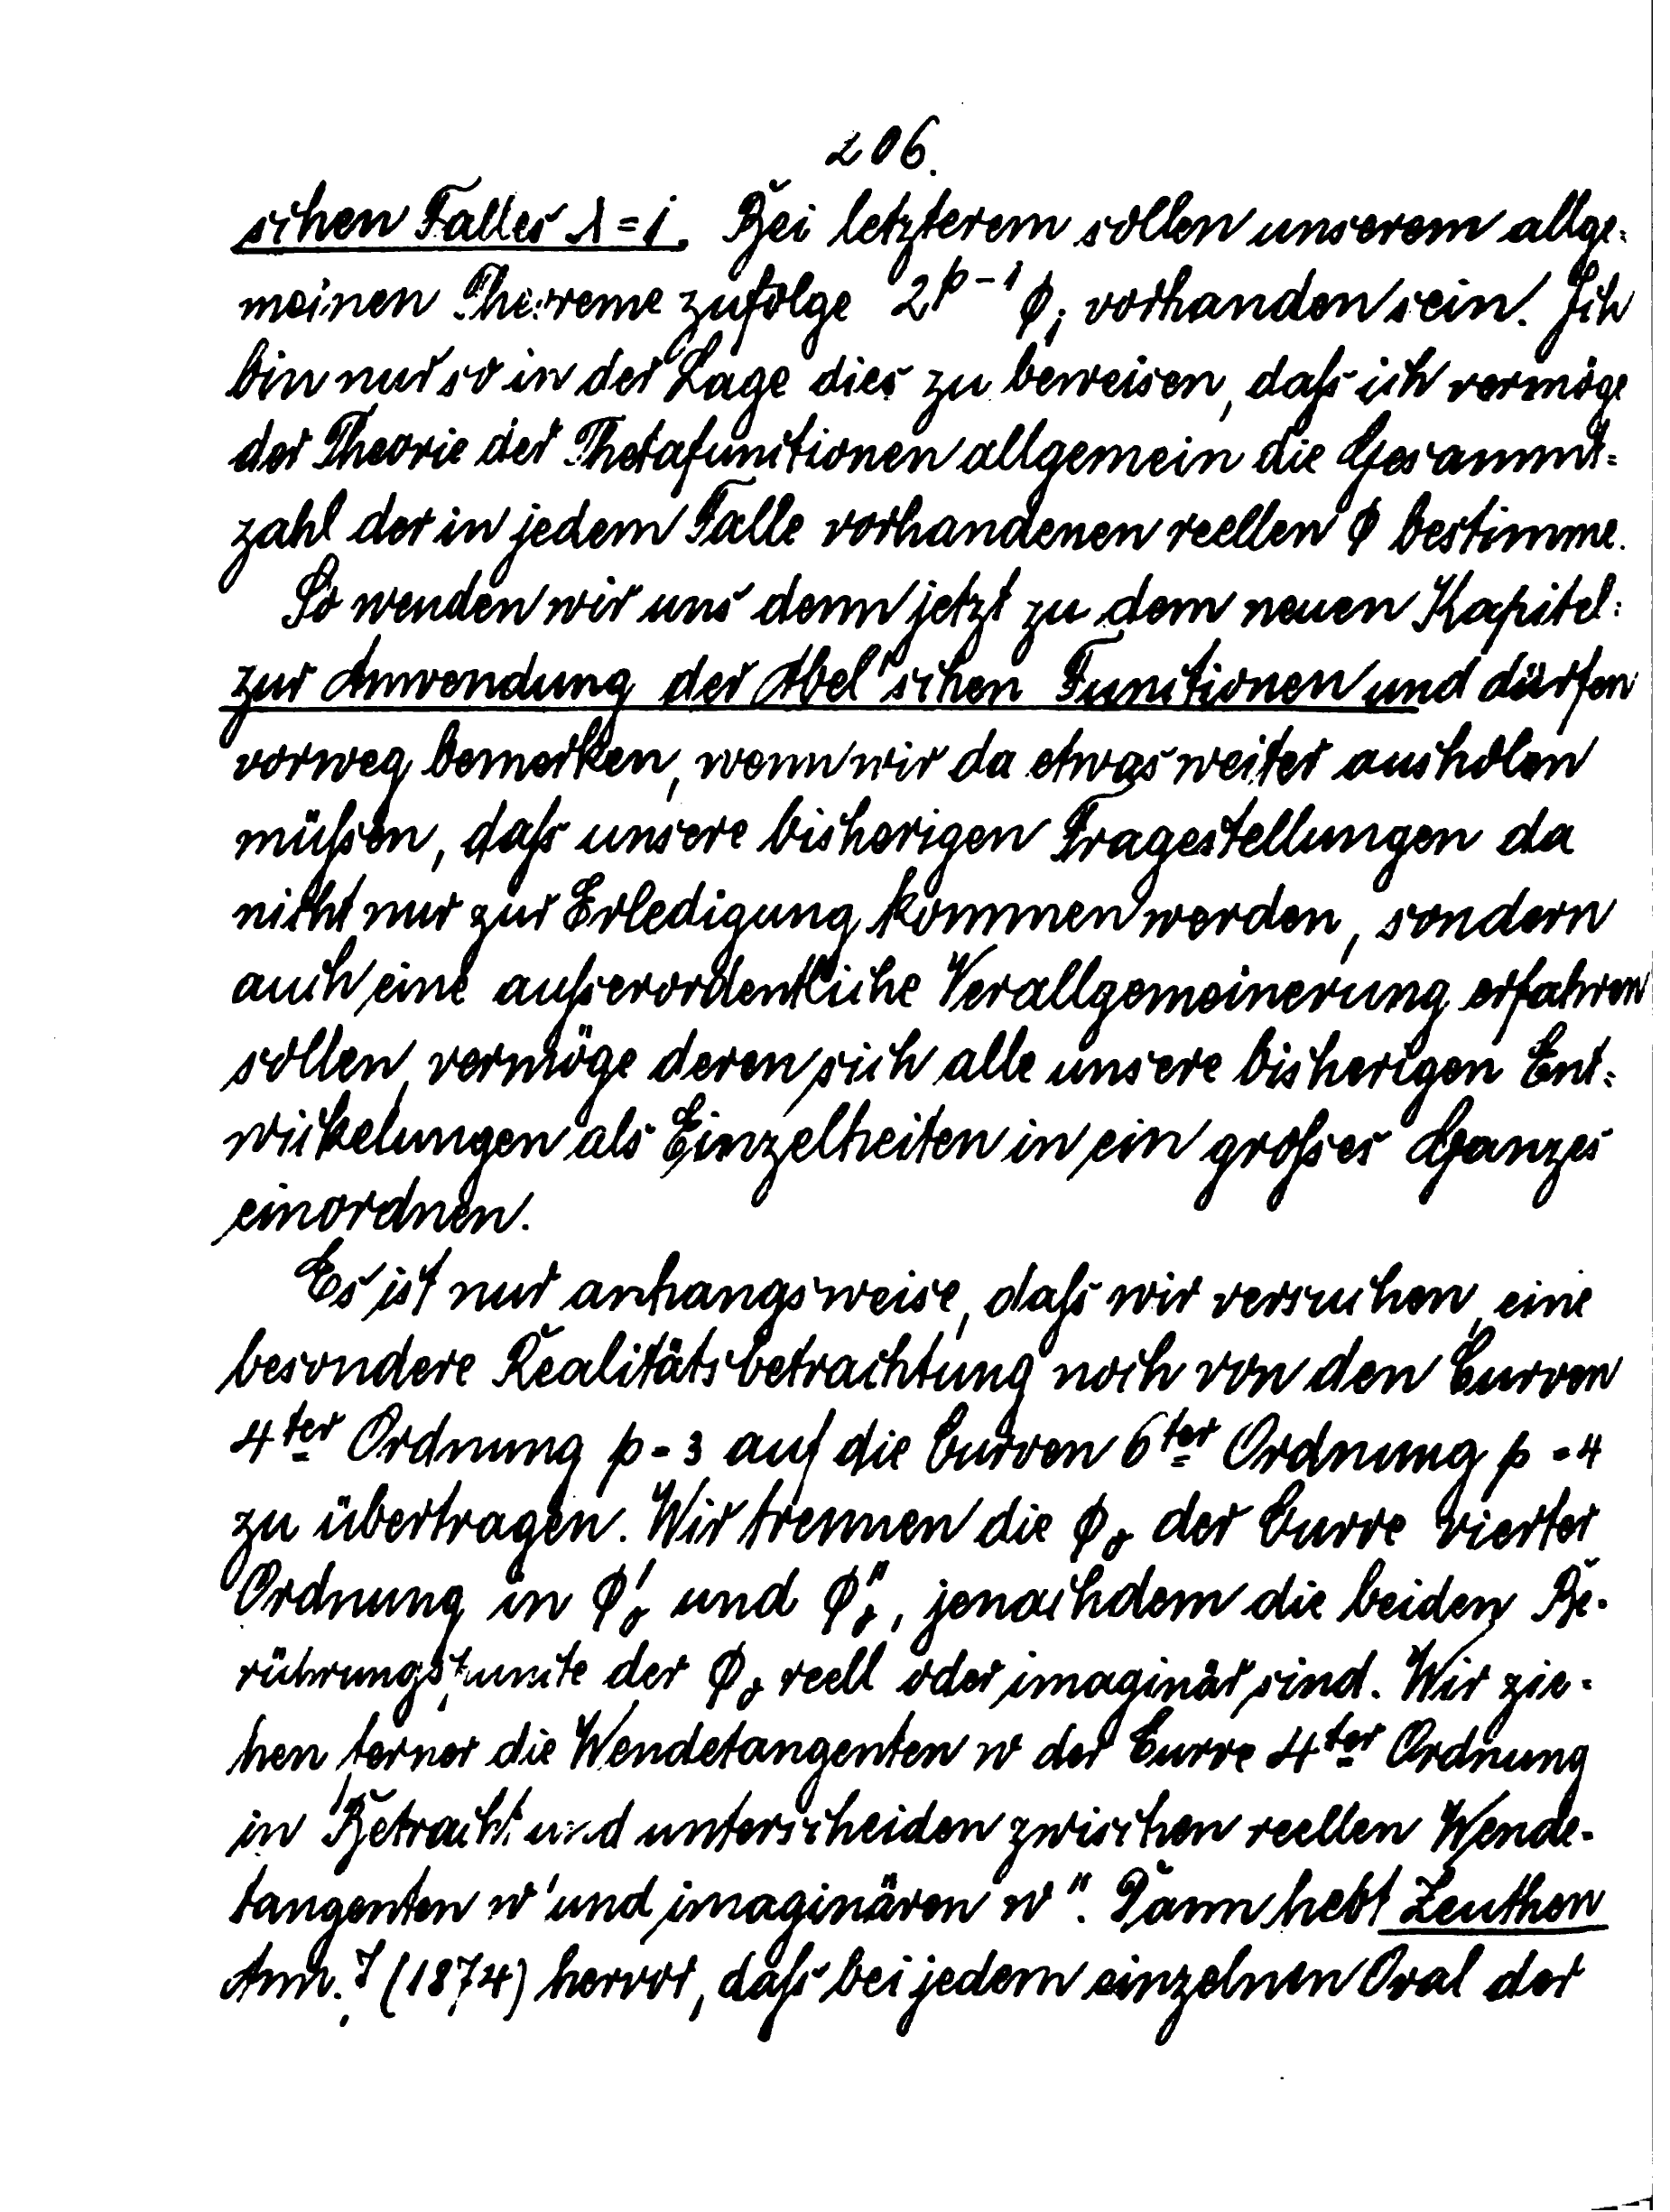 206.
schen Falles λ=1. Bei letzterem sollen unserem allge-
meinen Theoreme zufolge 2^{p-1} φ_1 vorhanden sein. Ich
bin nur so in der Lage dies zu beweisen, daß ich vermöge
der Theorie der Thetafunctionen allgemein die Gesammt-
zahl der in jedem Falle vorhandenen reellen φ bestimme.
So wenden wir uns denn jetzt zu dem neuen Kapitel:
zur Anwendung der Abel'schen Functionen und dürfen
vorweg bemerken, wenn wir da etwas weiter ausholen
müßen, daß unsere bisherigen Fragestellungen da
nicht nur zur Erledigung kommen werden, sondern
auch eine außerordentliche Verallgemeinerung erfahren
sollen, vermöge deren sich alle unsere bisherigen Ent-
wickelungen als Einzelheiten in ein großes Ganzes
einordnen.
Es ist nur anhangsweise, daß wir versuchen, eine
besondere Realitätsbetrachtung noch von den Curven
4ter Ordnung p=3 auf die Curven 6ter Ordnung p=4
zu übertragen. Wir trennen die φ_0 der Curve vierter
Ordnung in φ'_0 und φ''_0, jenachdem die beiden Be-
rührungspuncte der φ_0 reell oder imaginär sind. Wir zie-
hen ferner die Wendetangenten w der Curve 4ter Ordnung
in Betracht und unterscheiden zwischen reellen Wende-
tangenten w' und imaginären w''. Dann hebt Zeuthen
Ann. 7 (1874) hervor, daß bei jedem einzelnen Oval der